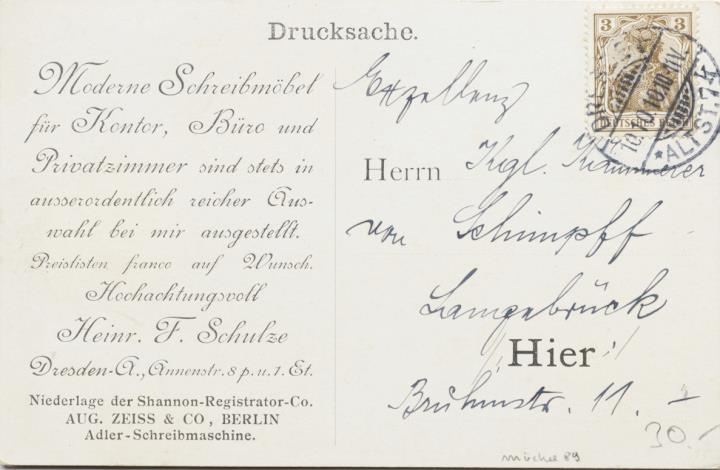 Drucksache.
Moderne Schreibmöbel
für Kontor, Büro und
Privatzimmer sind stets in
ausserordentlich reicher Aus-
wahl bei mir ausgestellt.
Preislisten franco auf Wunsch.
Hochachtungsvoll
Heinr. F. Schulze
Dresden-A., Annenstr. 8 p. u. 1. Et.
Niederlage der Shannon-Registrator-Co.
AUG. ZEISS & CO, BERLIN
Adler-Schreibmaschine.
3 3
DEUTSCHES REICH
*ALTST. 7 K
Exzellenz
Herrn Kgl. Kammerer
von Schimpff
Langebrück
Hier
Bruhnstr. 11.
30.-